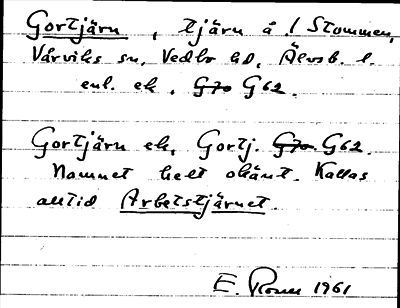 Gortjärn, tjärn å / Stommen,
Vårviks sn. Vedbo hd, Älvsb. l.
enl. ek. G70 G62.
Gortjärn ek, Gortj. G70 G62.
Namnet helt okänt. Kallas
alltid Arbetstjärnet.
E. 1961